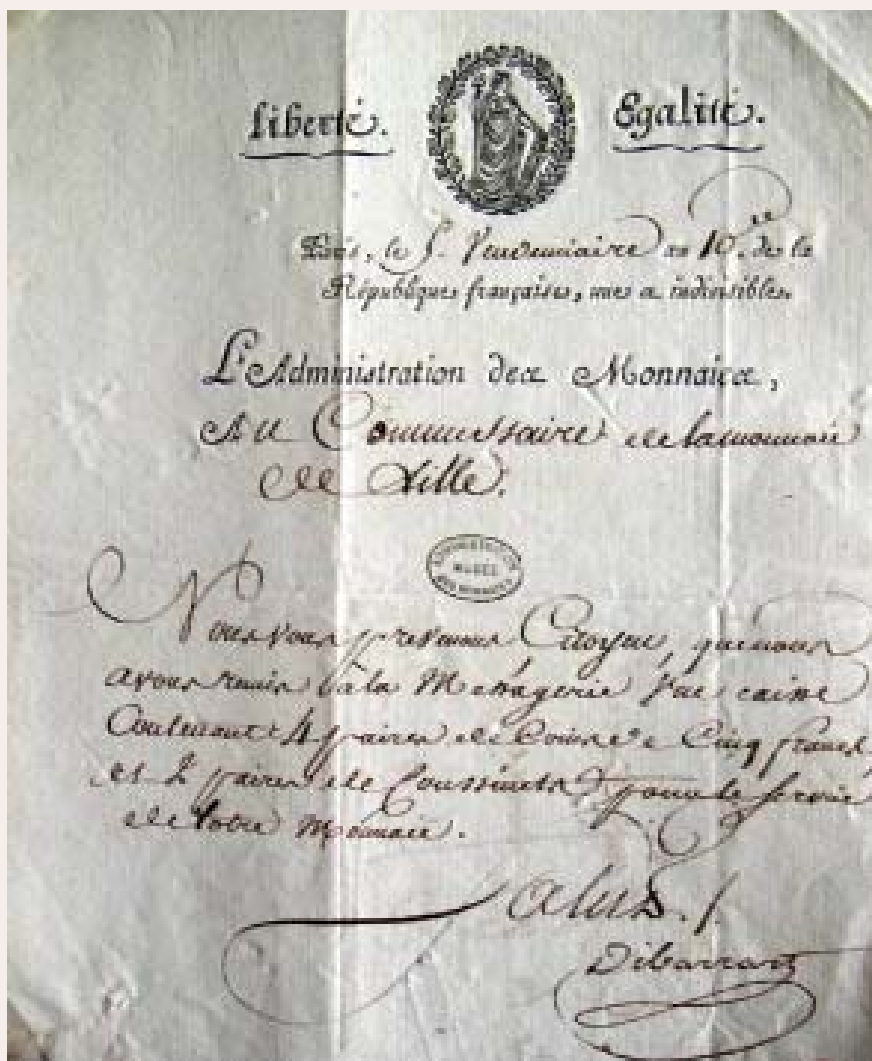 Liberté. Egalité.
Paris, le 5. Vendemiaire an 10.e de la
République française, une et indivisible.
L'Administration des Monnaies,
Au Commissaire de la monnaie
de Lille.
ADMINISTRATION
MUSÉE
DES MONNAIES
Nous vous prevenons Citoyen, que nous
avons remis à la Messagerie une caisse
Contenant 4 paires de Coins de Cinq francs
et 2 paires de Coussinets pour le service
de votre Monnaie.
Salut.